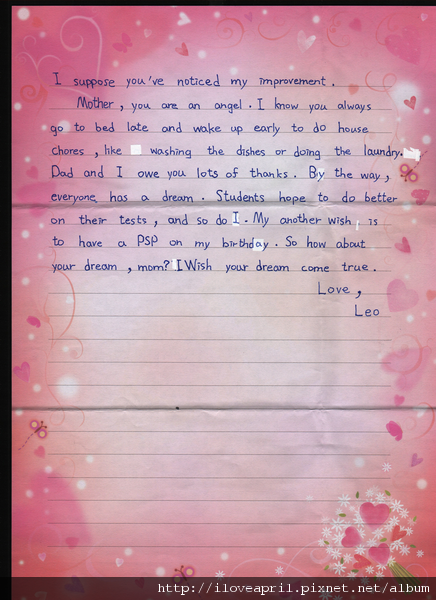 I suppose you've noticed my improvement.
Mother, you are an angel. I know you always
go to bed late and wake up early to do house
chores, like washing the dishes or doing the laundry.
Dad and I owe you lots of thanks. By the way,
everyone has a dream. Students hope to do better
on their tests, and so do I. My another wish is
to have a PSP on my birthday. So how about
your dream, mom? I Wish your dream come true.
Love,
Leo
http://iloveapril.pixnet.net/album